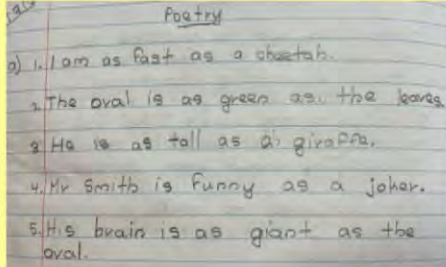 Poetry
a) 1. I am as fast as a cheetah.
2. The oval is as green as the leaves
3 He is as tall as a giraffe.
4. Mr Smith is funny as a joker.
5. His brain is as giant as the
oval.